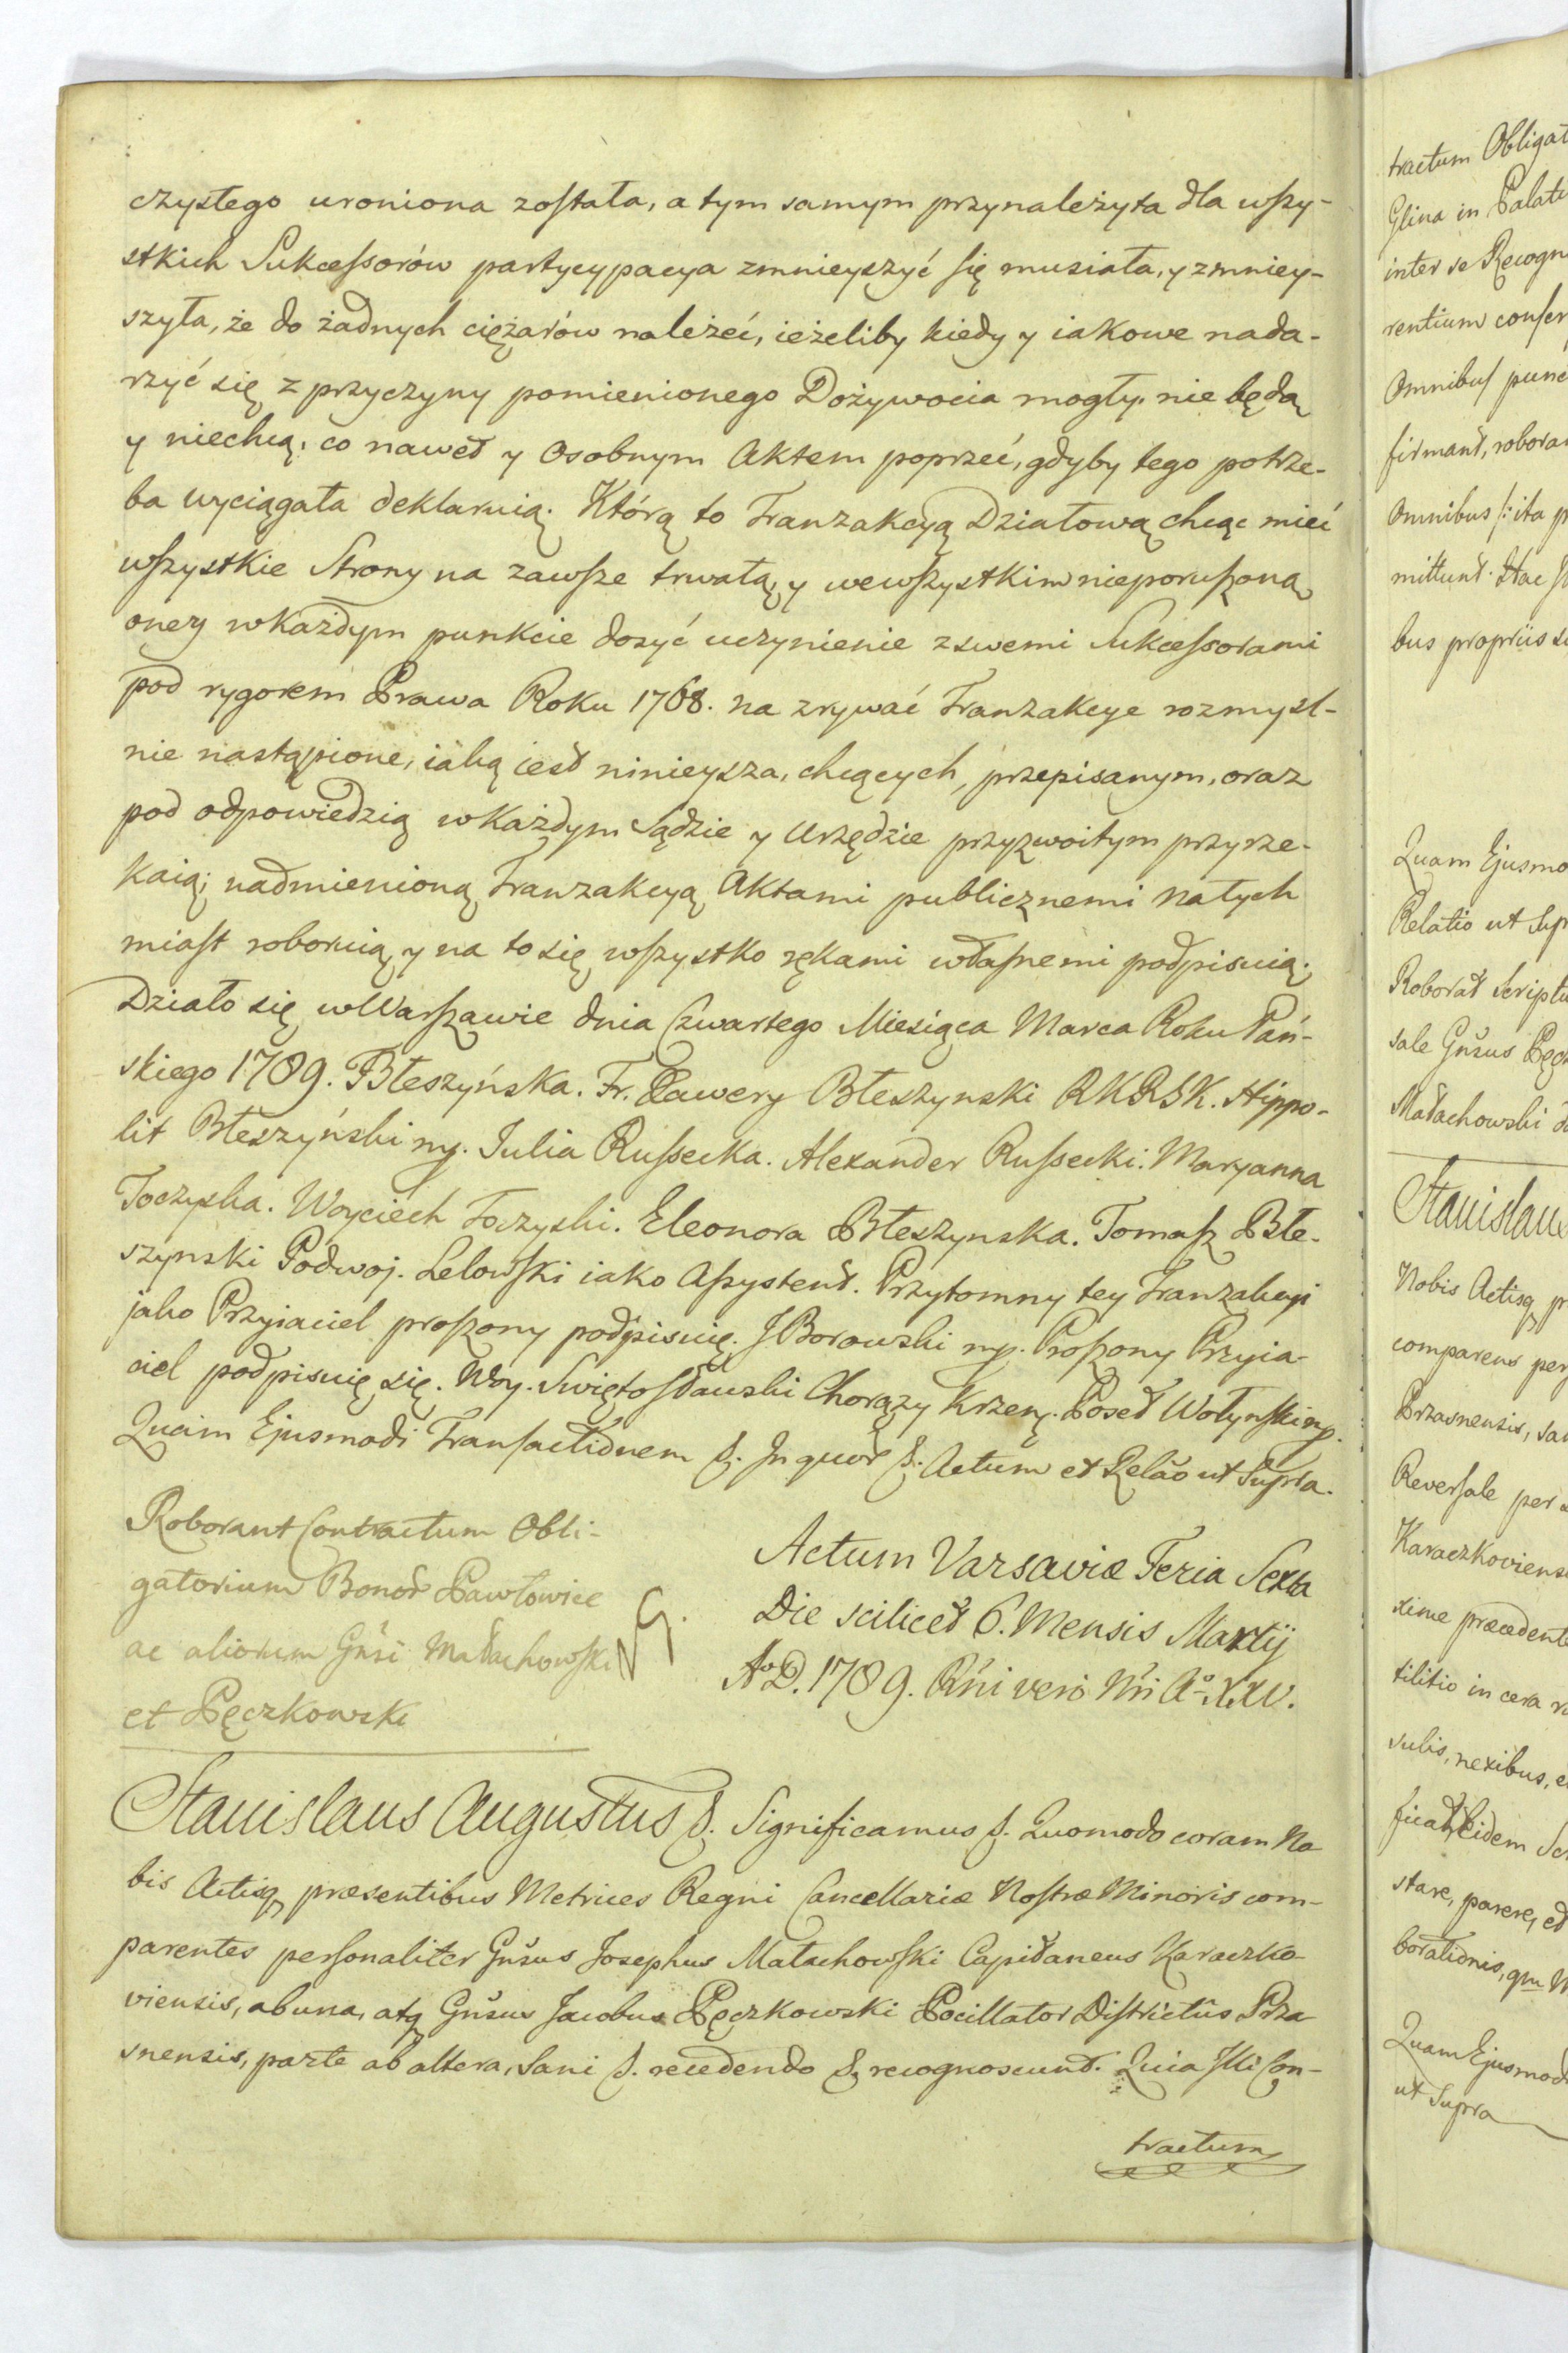 czystego uroniona została, a tym samym przynależyta dla wszy-
stkich Sukcessorów partycypacya zmnieyszyć się musiała, y zmniey-
szyła, że do żadnych ciężarów należeć, ieżeliby kiedy y iakowe nada-
rzyć się z przyczyny pomienionego Dożywocia mogły, nie będą
y niechcą, co nawet y osobnym Aktem poprzeć, gdyby tego potrze-
ba wyciągała deklaruią. Którą to Tranzakcyą Działową chcąc mieć
wszystkie Strony na zawsze trwałą, y wewszystkim nieporuszoną
oney w każdym punkcie dosyć uczynienie z swemi Sukcessorami
pod rygorem Prawa Roku 1768. na zrywać Tranzakcye rozmysl-
nie nastąpione, iaką iest ninieysza, chcących, przepisanym, oraz
pod odpowiedzią w każdym Sądzie y Urzędzie przyzwoitym przyrze-
kaią; nadmienioną Tranzakcyą Aktami publicznemi natych
miast roboruią, y na to się wszystko rękami własnemi podpisuią.
Działo się w Warszawie dnia Czwartego Miesiąca Marca Roku Pań-
skiego 1789. Błeszyńska. Fr. Xawery Błeszynski RKRSK. Hippo-
lit Błeszyński mp. Julia Russecka. Alexander Russecki. Maryanna
Toczyska. Woyciech Toczyski. Eleonora Błeszynska. Tomasz Błe-
szynski Podwoj. Lelowski iako Assystent. Przytomny tey Tranzakcyi
jako Przyiaciel proszony podpisuię. J Borowski mp. Proszony Przyia-
ciel podpisuię się. Woy. Swiętosławski Chorąży Krzem. Poseł Wołynski mp.
Quam Ejusmodi Transactionem &. In quor &. Actum et Relão ut Supra.
Roborant Contractum Obli-
gatorium Bonor Pawłowice
ac aliorum Gnsi Małachowski
et Pęczkowski
Actum Varsaviæ Feria Sexta
Die scilicet 6. Mensis Martij
Aº D. 1789. Rni vero Nri Aº XXV.
Stanislaus Augustus &. Significamus &. Quomodo coram No
bis Actisq præsentibus Metrices Regni Cancellariæ Nostræ Minoris com-
parentes personaliter Gnsus Josephus Małachowski Capitaneus Karaczko
viensis, ab una, atq Gnsus Jacobus Pęczkowski Pocillator Districtûs Prza
snensis, parte ab altera, Sani &. recedendo &. recognoscunt. Quia Illi Con-
tractum
tractum
Glina in
inter se
rentium
Omnibus
firmant,
Omnibus /: ita
mittunt. Hac
bus propriis
Quam
Relatio ut
Roborat
sale Gnsus
Małachowski
Nobis Actisq
comparens
Przasnensis,
Reversale per
tilitio in cera
sulis, nexibus,
stare, parere, et
ut Supra